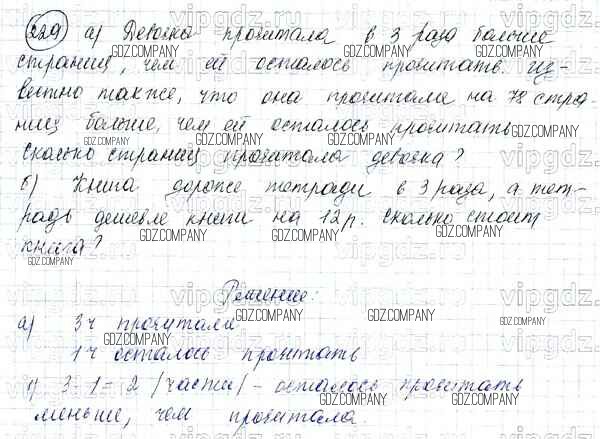 229 а) Девочка прочитала в 3 раза больше
страниц, чем ей осталось прочитать. Из-
вестно также, что она прочитала на 78 стра-
ниц больше, чем ей осталось прочитать.
Сколько страниц прочитала девочка?
б) Книга дороже тетради в 3 раза, а тет-
радь дешевле книги на 12 р. Сколько стоит
книга?
Решение:
а) 3ч прочитали
1ч осталось прочитать
1) 3-1=2 (части) - осталось прочитать
меньше, чем прочитала.